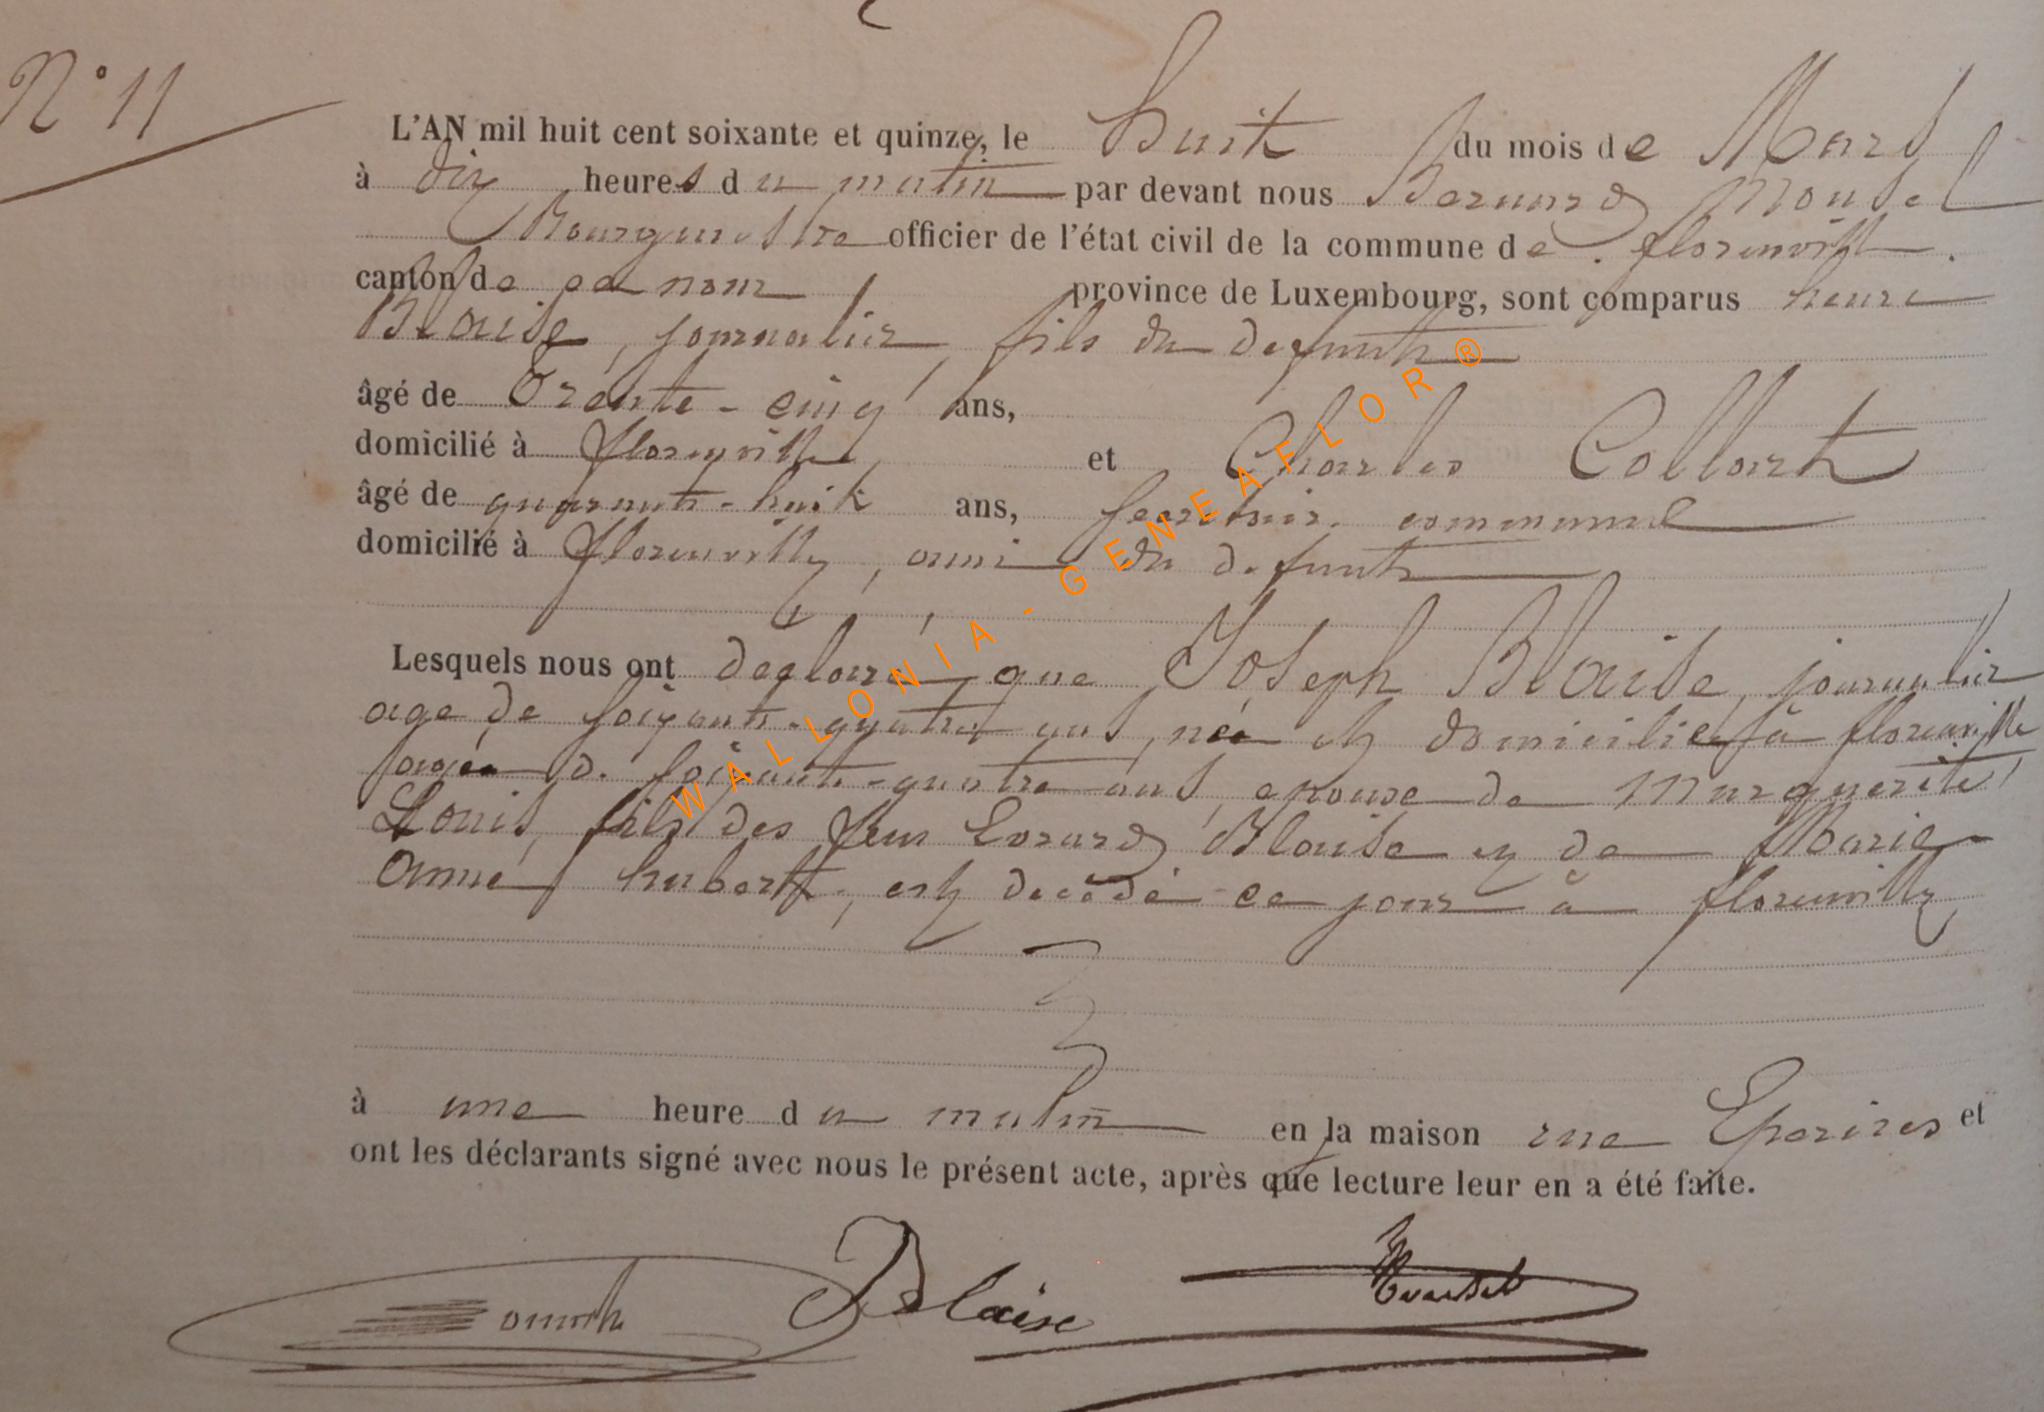 N° 11
L'AN mil huit cent soixante et quinze, le huit du mois de Mars
à dix heures du matin par devant nous Bernard Mousel
Bourgmestre officier de l'état civil de la commune de florenville.
canton de ce nom province de Luxembourg, sont comparus henri
Blaise, journalier, fils du defunt
âgé de Trente-cinq ans,
domicilié à florenville, et Charles Collart
âgé de quarante-huit ans, secretaire communal
domicilié à florenville, ami du defunt
Lesquels nous ont declaré que Joseph Blaise, journalier
age de soixante-quatre ans, né et domicilié à florenville
agée de soixante-quatre ans, epouse de Marguerite
Louis, fils des feu Erard Blaise et de Marie
anne hubert, est decédé ce jour à florenville
à une heure du matin en la maison rue Eperires et
ont les déclarants signé avec nous le présent acte, après que lecture leur en a été faite.
Blaise
WALLONIA - GENEAFLOR ®